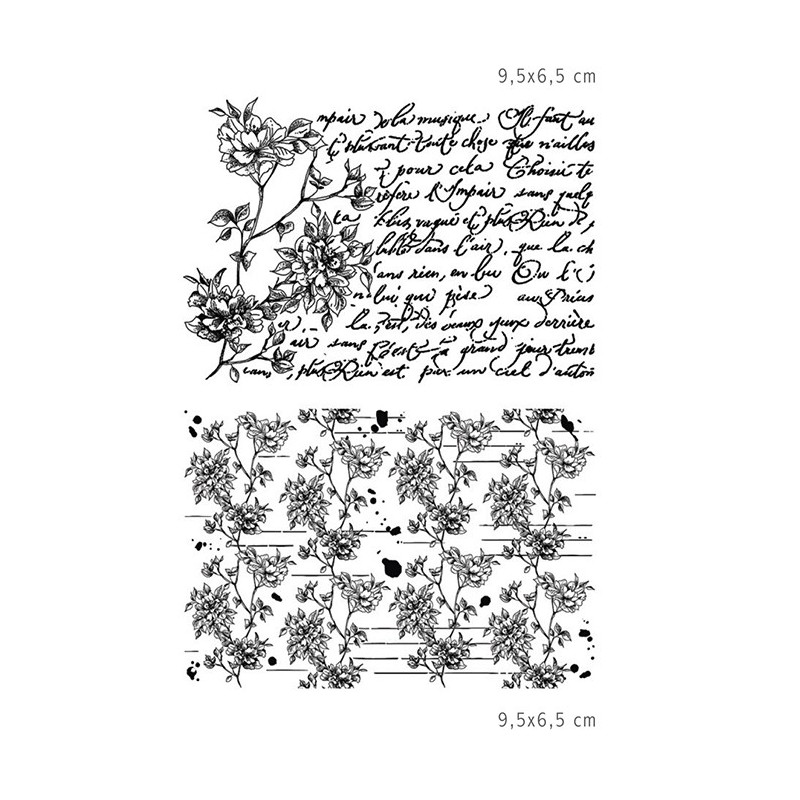 9,5x6,5 cm
mpair de la musique Il faut au
toute chose que n'ailles
pour cela Choisir te
l'Impair sans quelq
ta plus vague et plus
dans l'air, que la ch
sans rien, en lui Ou l'
n lui qui pèse au
la des beaux yeux derrière
air sans à grand jour tremb
sans , plus Rien est par un ciel d'autom
9,5x6,5 cm